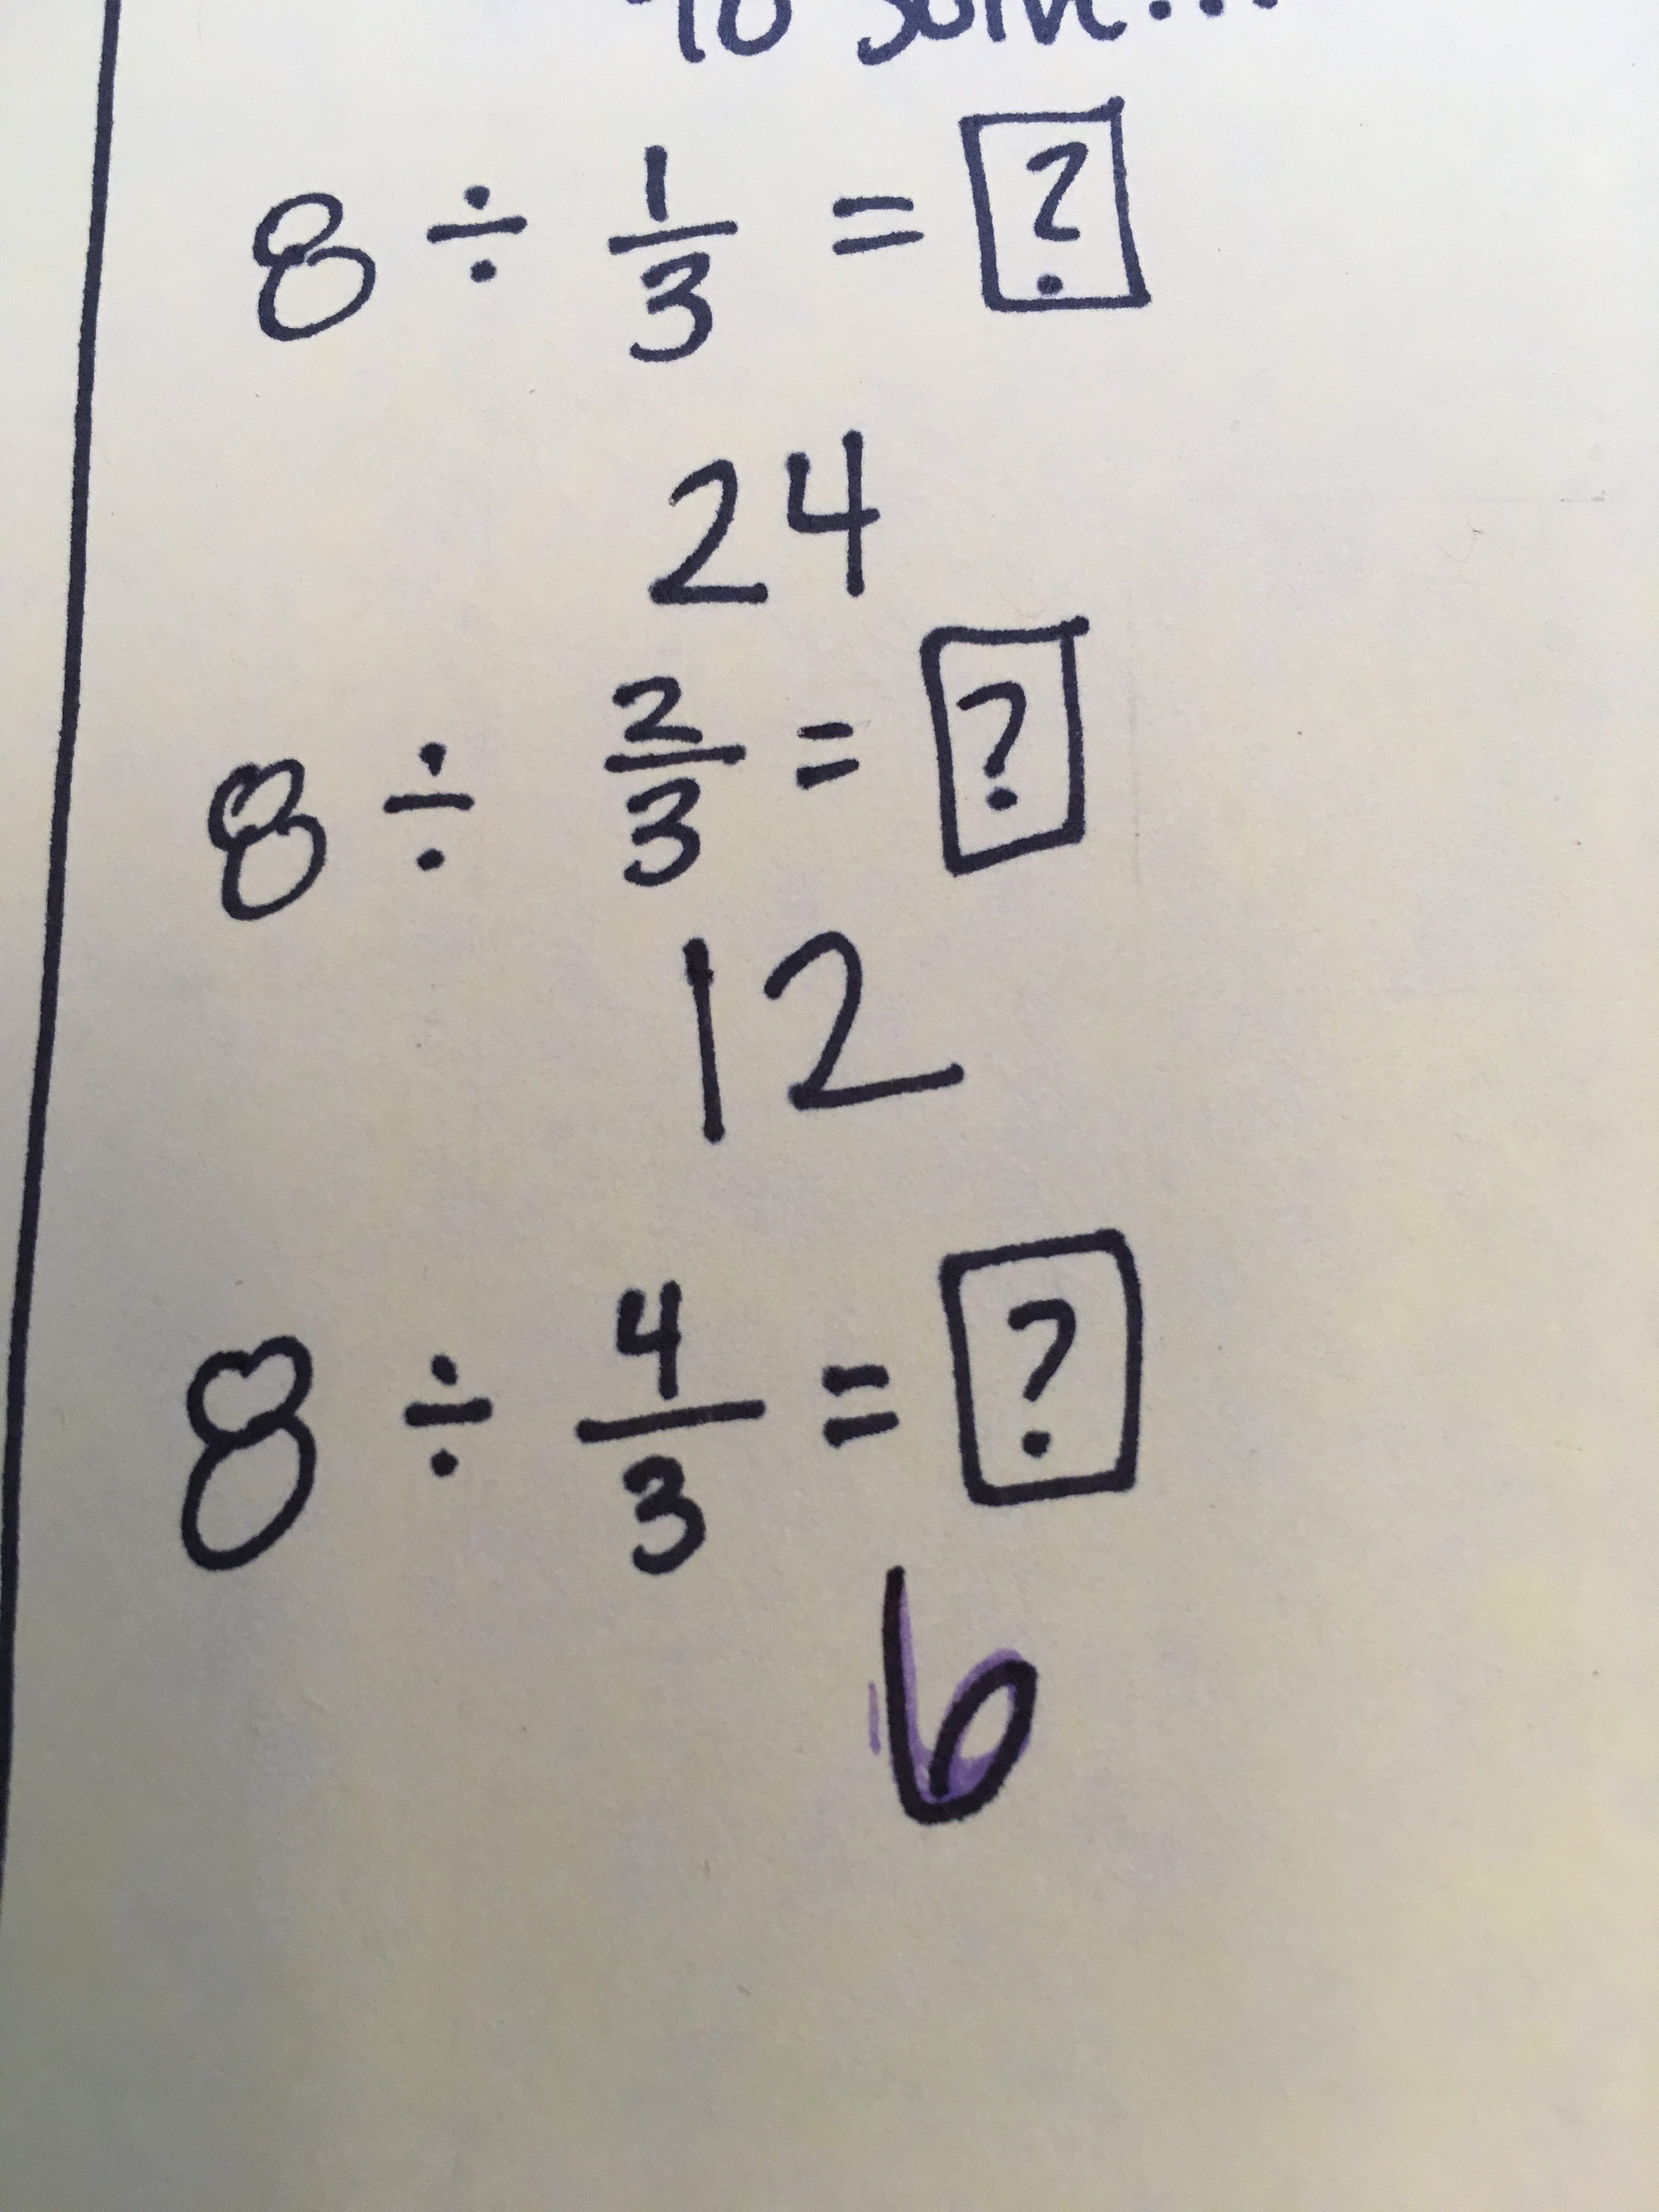 to solve...
8 ÷ 1/3 = ?
24
8 ÷ 2/3 = ?
12
8 ÷ 4/3 = ?
6